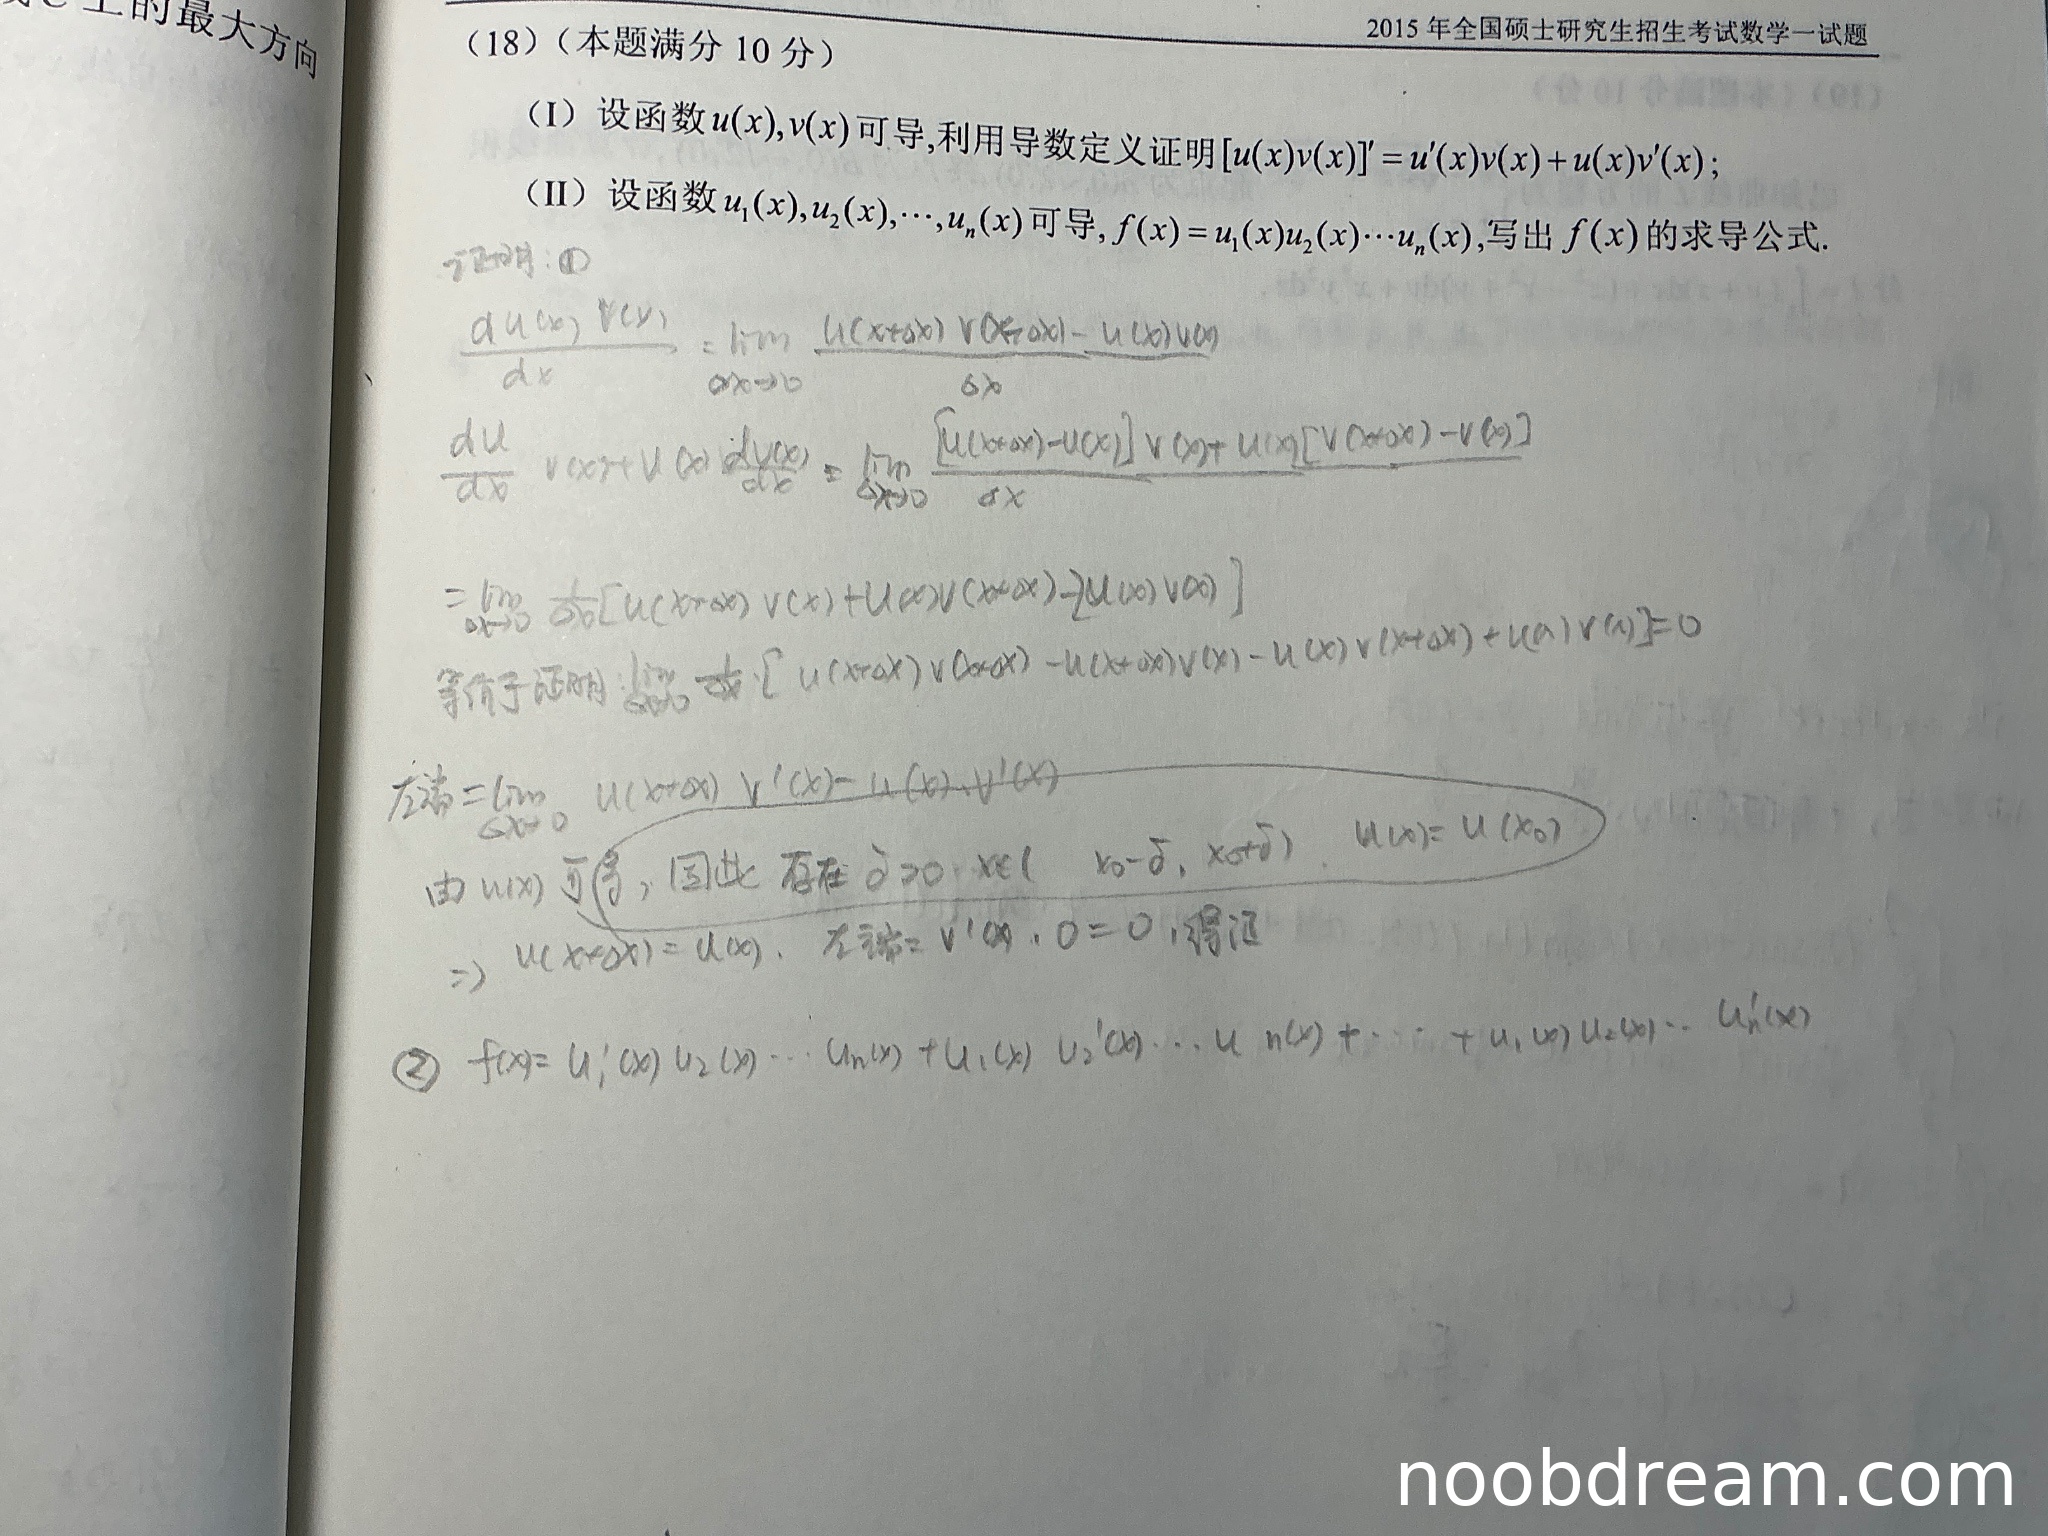 上的最大方向
2015 年全国硕士研究生招生考试数学一试题
(18)(本题满分 10 分)
(I) 设函数u(x),v(x)可导,利用导数定义证明[u(x)v(x)]′=u′(x)v(x)+u(x)v′(x);
(II) 设函数u₁(x),u₂(x),⋯,uₙ(x)可导,f(x)=u₁(x)u₂(x)⋯uₙ(x),写出 f(x)的求导公式.
证明:①
du(x)v(x)/dx = lim Δx→0 u(x+Δx)v(x+Δx)-u(x)v(x)/Δx
du/dx v(x)+u(x) dv(x)/dx = lim Δx→0 [u(x+Δx)-u(x)]v(x)+u(x)[v(x+Δx)-v(x)]/Δx
=lim Δx→0 1/Δx[u(x+Δx)v(x)+u(x)v(x+Δx)-2u(x)v(x)]
等价于证明:lim Δx→0 1/Δx·[u(x+Δx)v(x+Δx)-u(x+Δx)v(x)-u(x)v(x+Δx)+u(x)v(x)]=0
左端=lim Δx→0 u(x+Δx) v′(x)-u(x)·v′(x)
由u(x)可导,因此 存在δ>0 x∈( x₀-δ, x₀+δ). u(x)=u(x₀)
=> u(x+Δx)=u(x). 左端=v′(x)·0=0,得证
② f(x)=u₁′(x)u₂(x)⋯uₙ(x)+u₁(x)u₂′(x)⋯uₙ(x)+⋯+u₁(x)u₂(x)⋯uₙ′(x)
noobdream.com